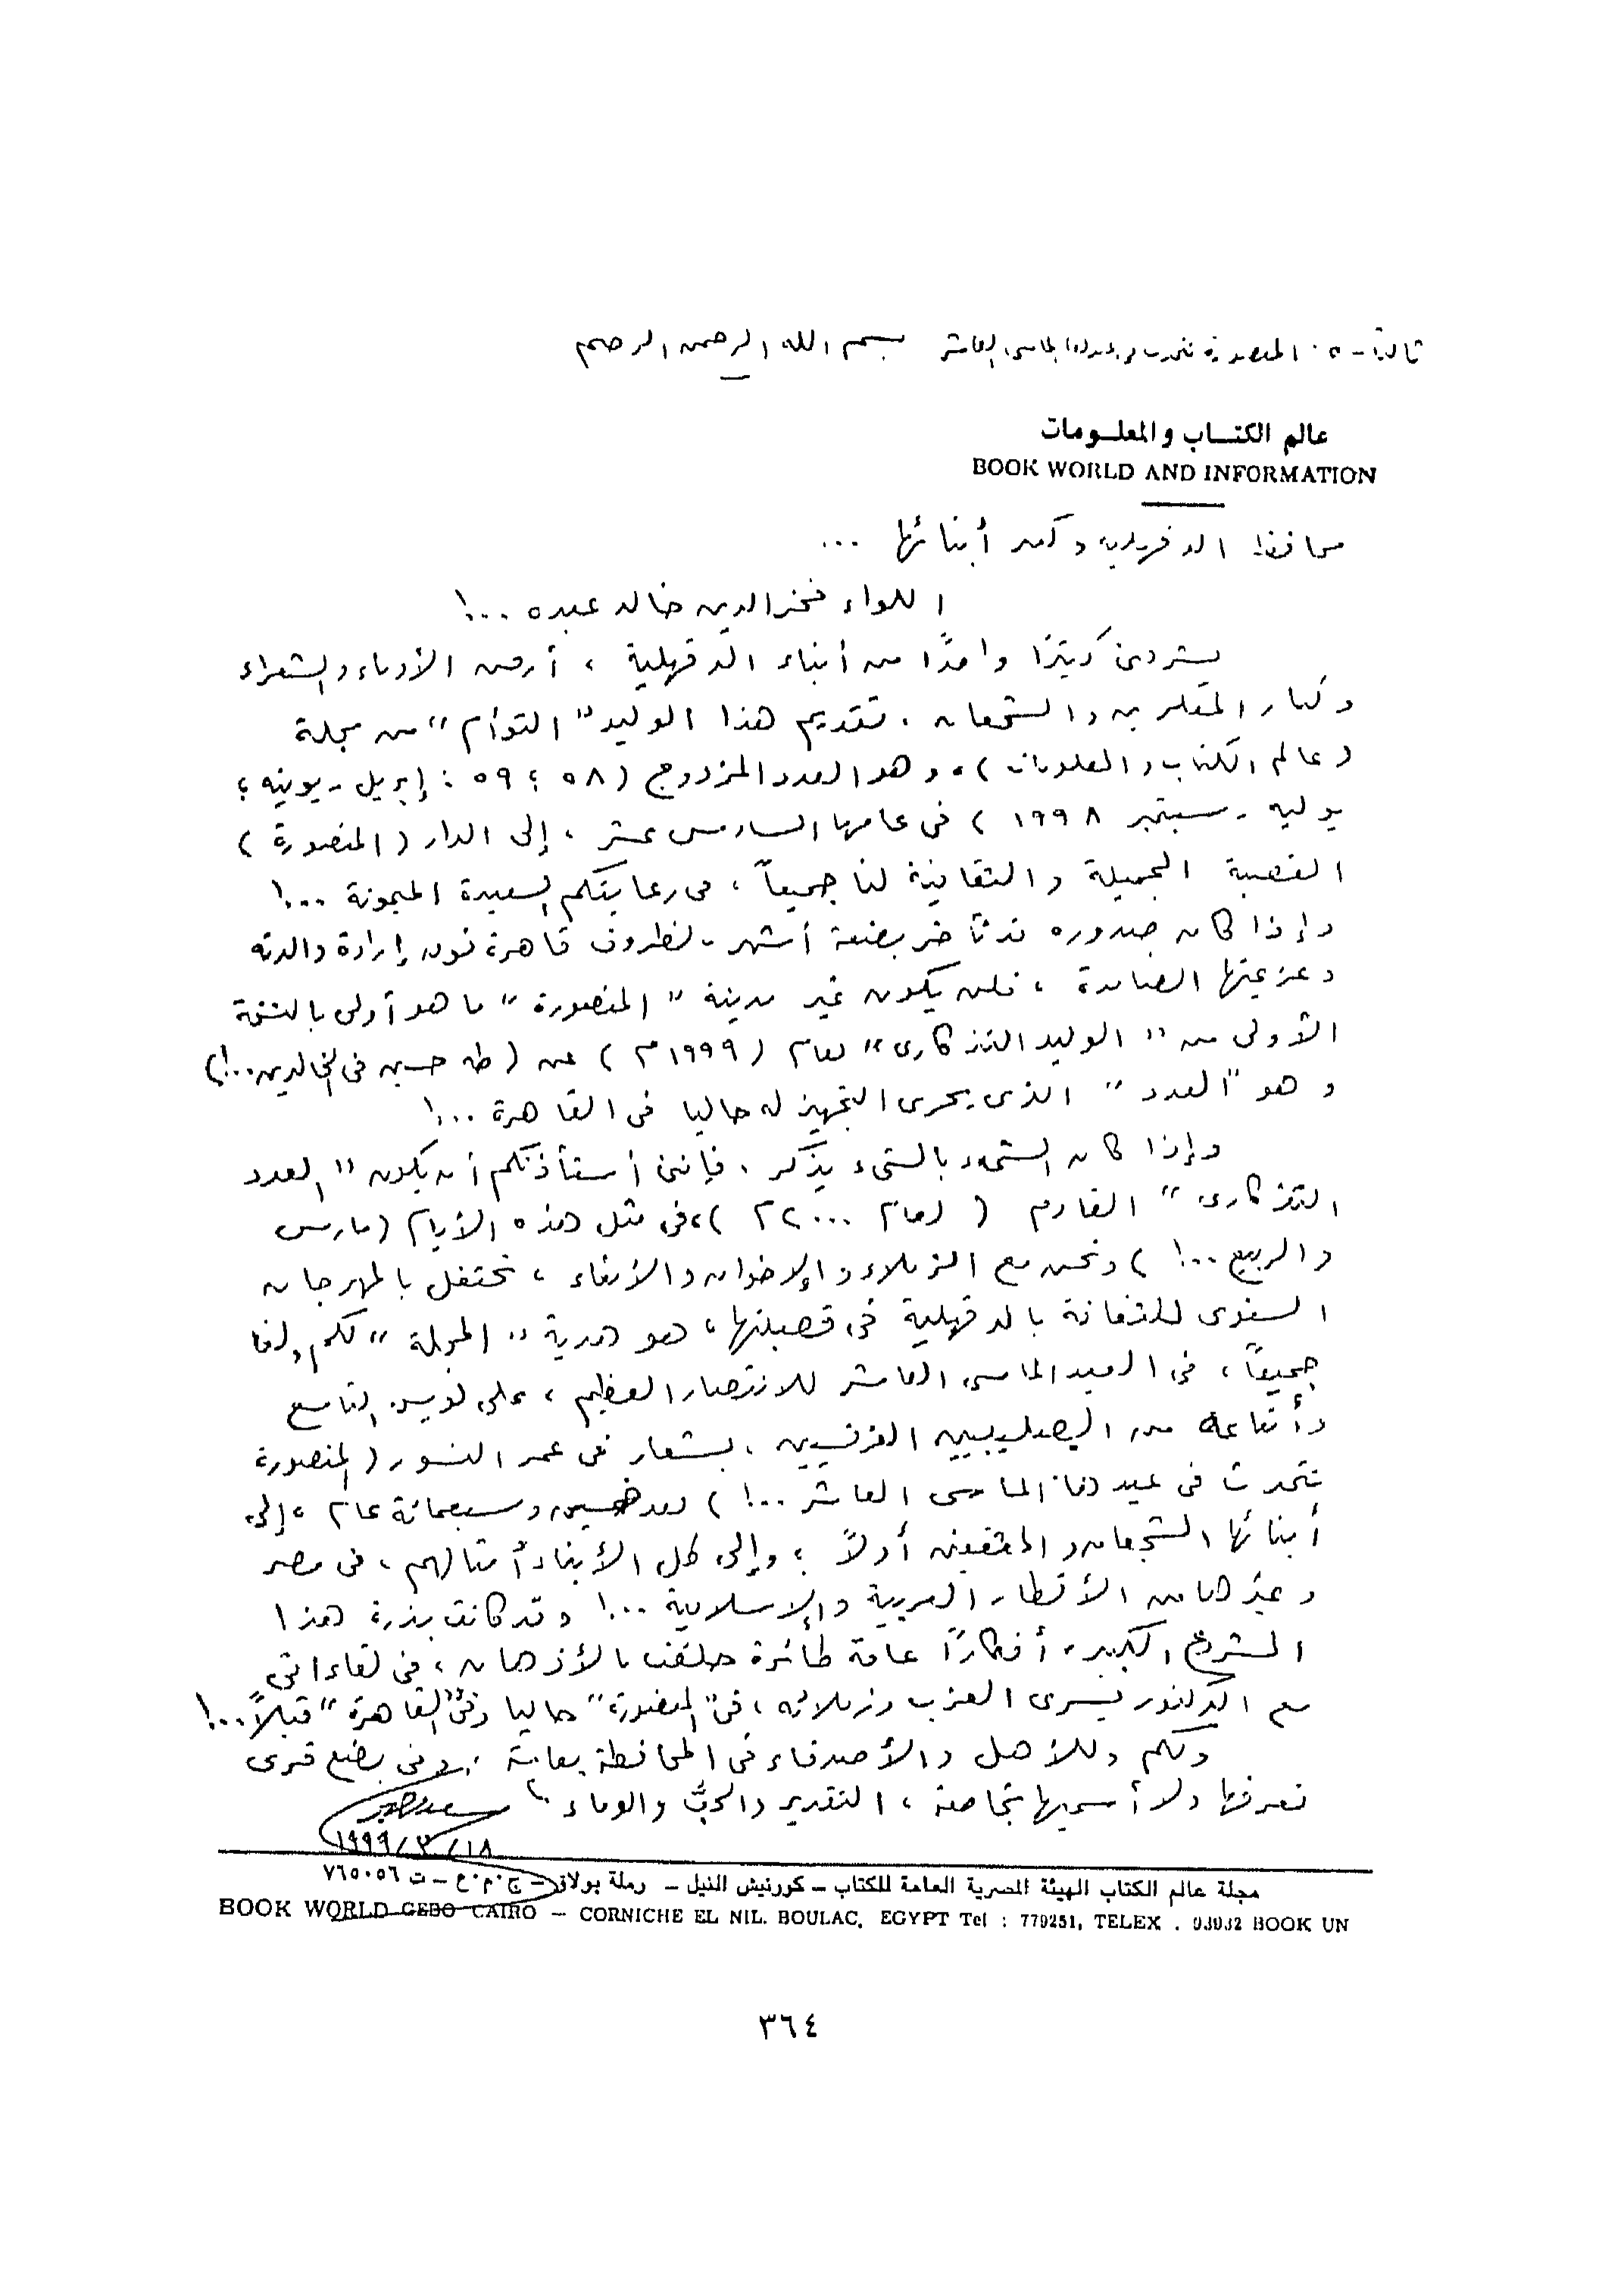 ثالثا - ٥٠ المنصورة تتحدث في عيدها الماسى العاشر بسم الله الرحمن الرحيم
عالم الكتـــاب والمعلـــومات
BOOK WORLD AND INFORMATION
محافظ الدقهلية وكل أبنائها ...
اللواء فخر الدين خالد عبده ...!
يشرفنى كثيرًا واحدًا من أبناء الدقهلية ، أرض الأدباء والشعراء
وكبار المفكرين والشجعان ، تقديم هذا الوليد "التوأم" من مجلة
( عالم الكتاب والمعلومات )، وهو العدد المزدوج ( ٥٨ ؛ ٥٩ : إبريل - يونيه ؛
يوليه - سبتمبر ١٩٩٨ ) فى عامها السادس عشر ، إلى الدار ( المنصورة )
القصبة الجميلة والثقافية لنا جميعاً ، فى رعايتكم السعيدة الميمونة ...!
وإذا كان صدوره قد تأخر بضعة أشهر - لظروف قاهرة فوق إرادة والدته
وعزيمتها الصامدة ، فلن يكون غير مدينة " المنصورة " ما هو أولى بالنسخة
الأولى من " الوليد التذكارى " لعام ( ١٩٩٩م ) عن ( طه حسين فى الخالدين ..!)
وهو "العدد " الذى يجرى التجهيز له حاليا فى القاهرة ...!
وإذا كان الشىء بالشىء يذكر ، فإننى أستأذنكم أن يكون " العدد
التذكارى " القادم ( لعام ٢٠٠٠م )، فى مثل هذه الأيام ( مارس
والربيع ..! ) ونحن مع الزملاء والإخوان والأبناء ، نحتفل بالمهرجان
السنوى للثقافة بالدقهلية فى قصبتها ، هو هدية " المجلة " لكم ولنا
جميعاً ، فى العيد الماسى العاشر للانتصار العظيم ، على لويس التاسع
وأتباعه من الصليبيين الفرنسيين ، بشعار فى عمر النسور ( المنصورة
تتحدث فى عيدها الماسى العاشر ..! ) بعد خمسين وسبعمائة عام ، إلى
أبنائها الشجعان والمثقفين أولاً ؛ وإلى كل الأبناء أمثالهم ، فى مصر
وغيرها من الأقطار العربية والإسلامية ...! وقد كانت بذرة هذا
المشروع الكبير ، أفكارًا عامة طائرة حلقت بالأذهان ، فى لقاءاتى
مع الدكتور يسرى العزب وزملائه ، فى "المنصورة" حاليا وفى "القاهرة" قبلاً ...!
ولكم وللأهل والأصدقاء فى المحافظة بعامة ، وفى بضع قرى
نعرفها ولا أسميها بخاصة ، التقدير والحبُّ والوفاء ،،
١٩٩٩/٣/١٨
مجلة عالم الكتاب الهيئة المصرية العامة للكتاب - كورنيش النيل - رملة بولاق - ج.م.ع - ت ٧٦٥٠٥٦
BOOK WORLD GEBO CAIRO – CORNICHE EL NIL. BOULAC, EGYPT Tel : 779251, TELEX . 93932 BOOK UN
٣٦٤